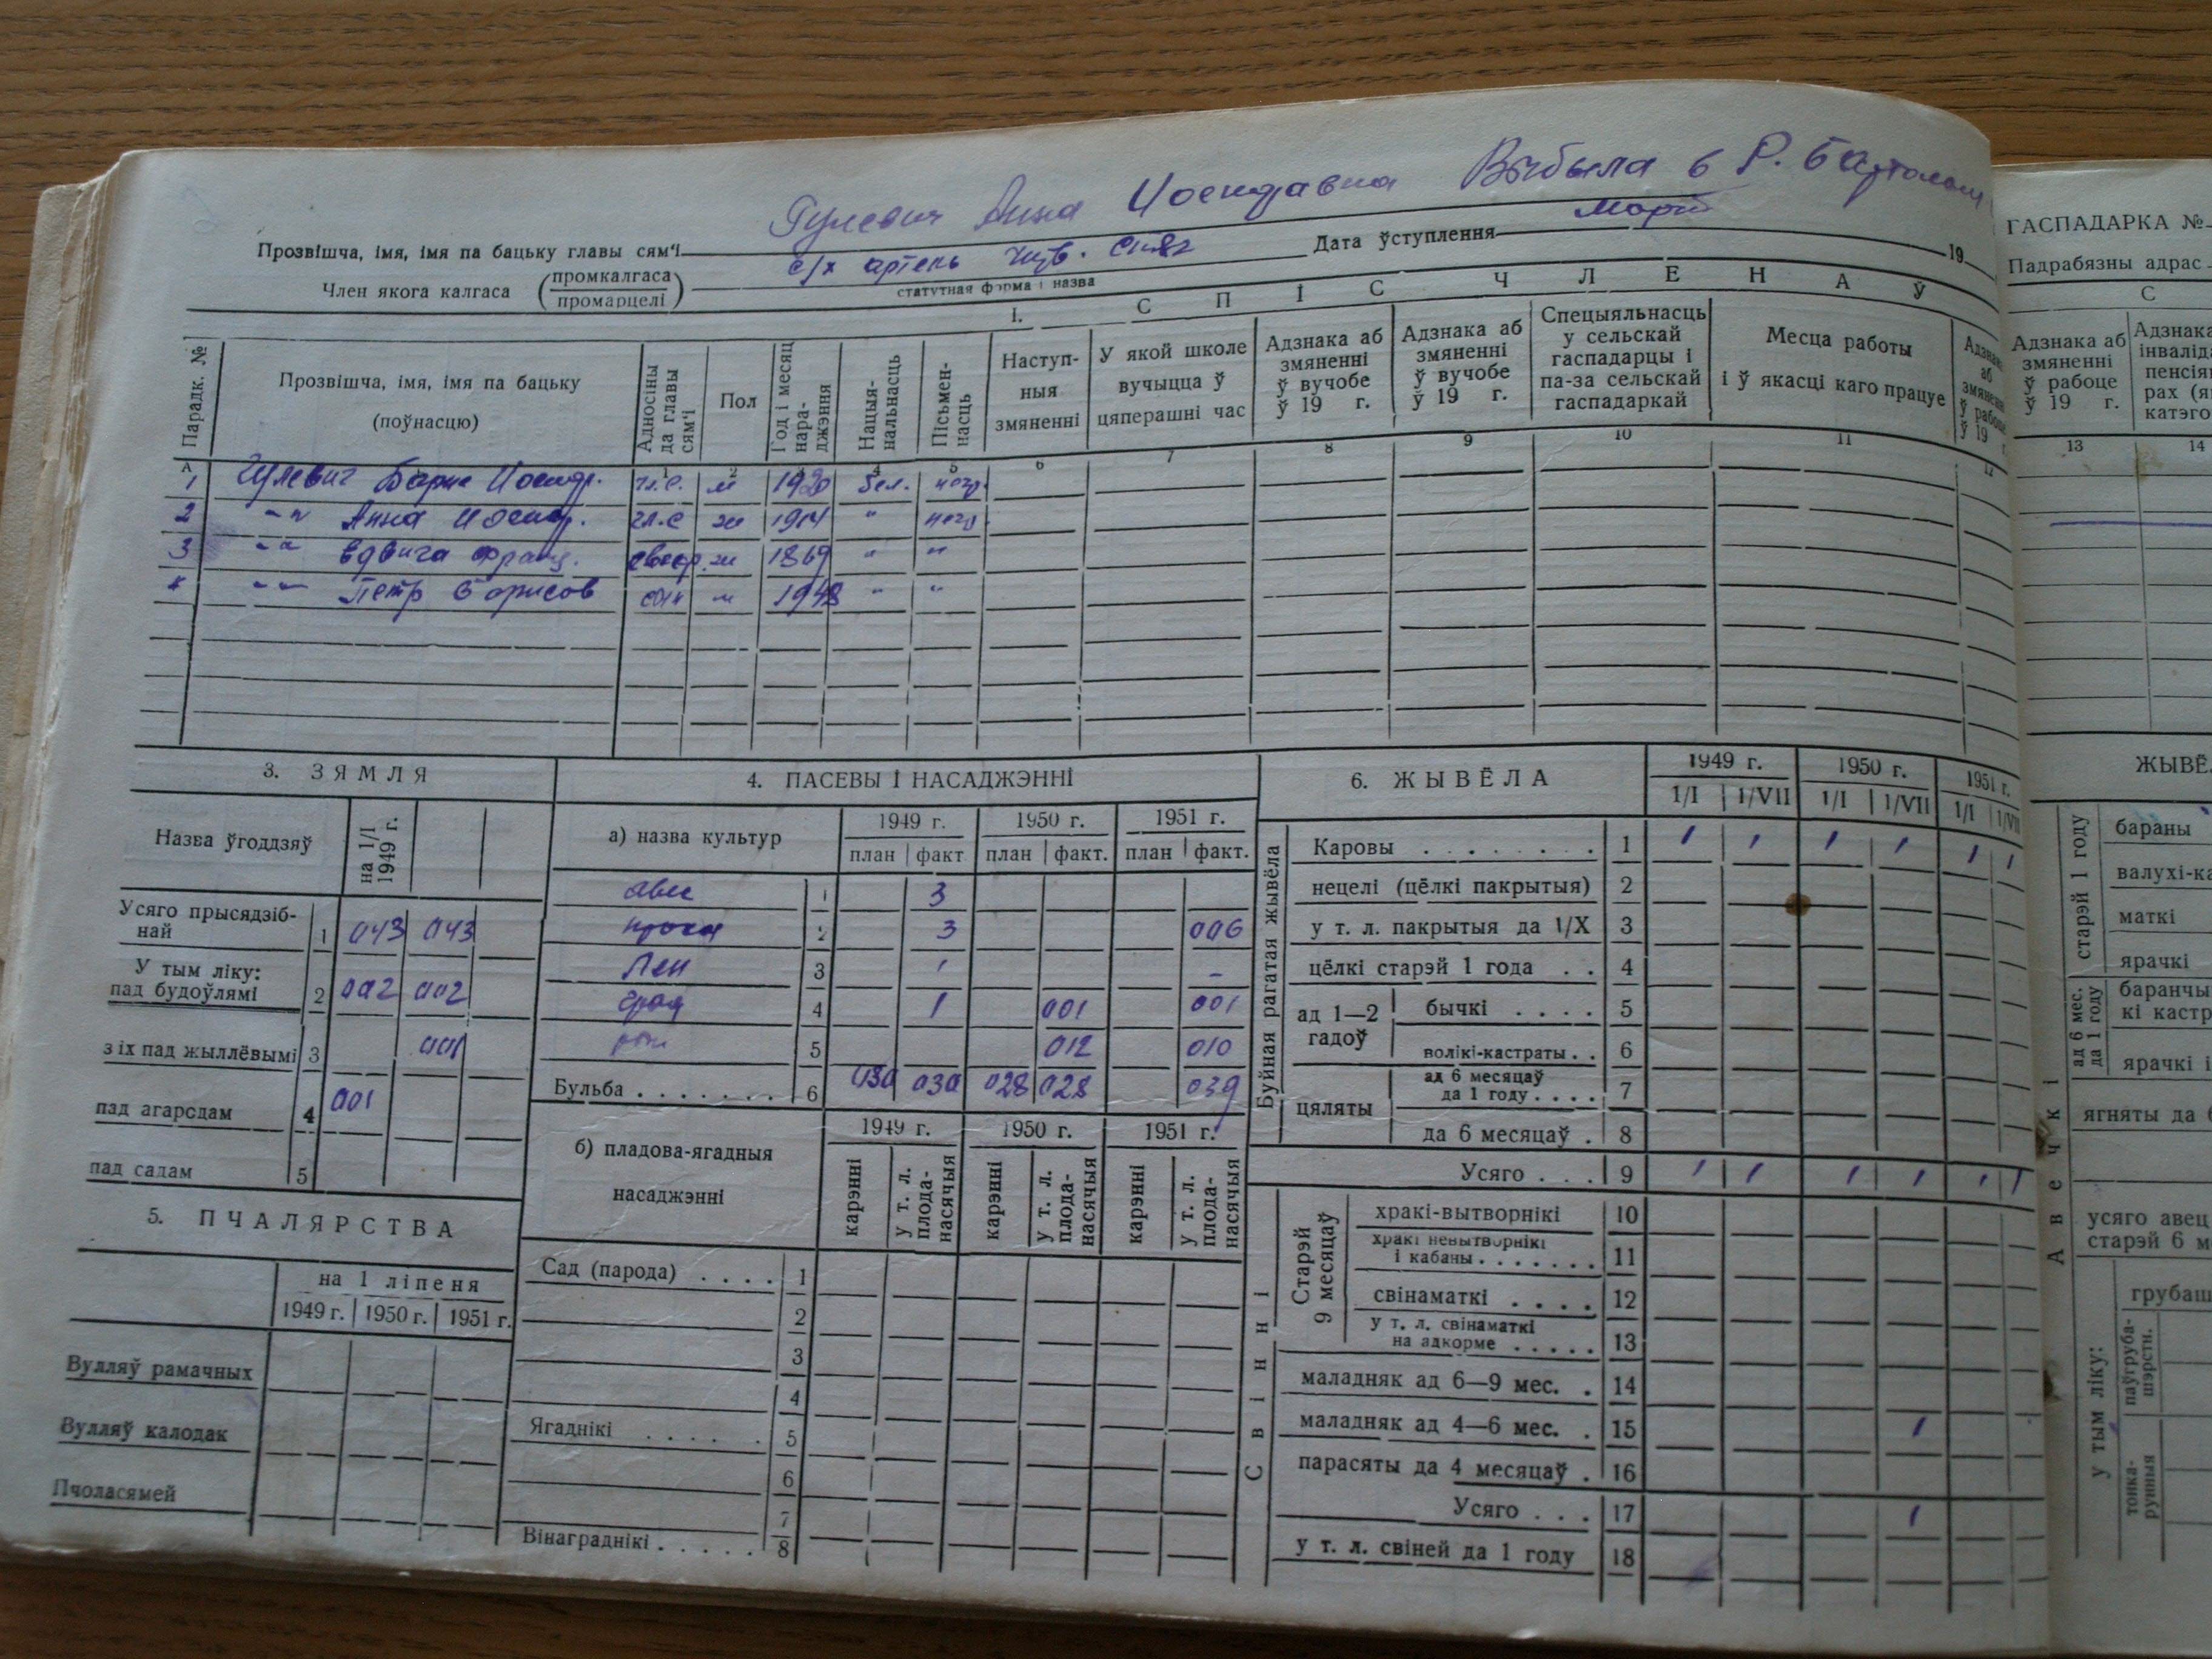 Гулевич Анна Иосифавна Выбыла в Р.
Прозвішча, імя, імя па бацьку главы сям'і
с/х артель
Дата ўступлення 19
Член якога калгаса (промкалгаса промарцелі)
статутная форма і назва
I. С П І С Ч Л Е Н А Ў
Парадк. №
Прозвішча, імя, імя па бацьку (поўнасцю)
Адносіны да главы сям'і
Пол
Год і месяц нараджэння
Нацыянальнасць
Пісьменнасць
Наступныя змяненні
У якой школе вучыцца ў цяперашні час
Адзнака аб змяненні ў вучобе ў 19 г.
Адзнака аб змяненні ў вучобе ў 19 г.
Спецыяльнасць у сельскай гаспадарцы і па-за сельскай гаспадаркай
Месца работы і ў якасці каго працуе
Адзнака аб змяненні ў рабоце ў 19
А 1 2 3 4 5 6 7 8 9 10 11 12
1 Гулевич м 1920 бел.
2 -"- Анна гл.с ж 1914 "
3 -"- франц. ж 1869 " "
-"- Петр Борисов сын м 1948 " "
3. ЗЯМЛЯ
Назва ўгоддзяў на 1/I 1949 г.
Усяго прысядзібнай 1 043 043
У тым ліку:
пад будоўлямі 2 002 002
з іх пад жыллёвымі 3 001
пад агародам 4 001
пад садам 5
4. ПАСЕВЫ І НАСАДЖЭННІ
а) назва культур 1949 г. 1950 г. 1951 г.
план факт план факт. план факт.
авес 1 3
2 3 006
Лен 3 ' -
4 1 001 001
5 012 010
Бульба 6 030 030 028 028 039
б) пладова-ягадныя насаджэнні
1949 г. 1950 г. 1951 г.
карэнні у т. л. пладанасячыя карэнні у т. л. пладанасячыя карэнні у т. л. пладанасячыя
Сад (парода) 1
2
3
4
Ягаднікі 5
6
7
Вінаграднікі 8
5. ПЧАЛЯРСТВА
на 1 ліпеня
1949 г. 1950 г. 1951 г.
Вулляў рамачных
Вулляў калодак
Пчоласямей
6. ЖЫВЁЛА
1949 г. 1950 г. 1951 г.
1/I 1/VII 1/I 1/VII 1/I 1/VII
Буйная рагатая жывёла
Каровы 1 1 1 1 1 1 1
нецелі (цёлкі пакрытыя) 2
у т. л. пакрытыя да 1/X 3
цёлкі старэй 1 года 4
ад 1—2 гадоў
бычкі 5
волікі-кастраты 6
цяляты
ад 6 месяцаў да 1 году 7
да 6 месяцаў 8
Усяго 9 1 1 1 1 1 1
Свінні
Старэй 9 месяцаў
хракі-вытворнікі 10
хракі невытворнікі і кабаны 11
свінаматкі 12
у т. л. свінаматкі на адкорме 13
маладняк ад 6—9 мес. 14
маладняк ад 4—6 мес. 15 1
парасяты да 4 месяцаў 16
Усяго 17 1
у т. л. свіней да 1 году 18
ГАСПАДАРКА №
Падрабязны адрас
С
Адзнака аб змяненні ў рабоце ў 19 г.
13 14
ЖЫВЁ
Авечкі
старэй 1 году
бараны
маткі
ярачкі
ад 6 мес. да 1 году
ягняты да 6
усяго авец
старэй 6 м
у тым ліку: